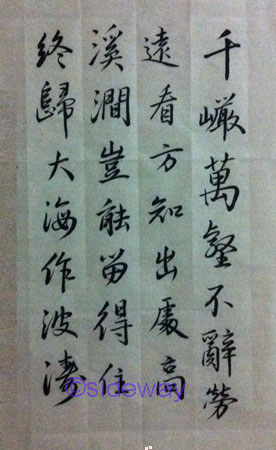 千巖萬壑不辭勞
遠看方知出處高
溪澗豈能留得住
終歸大海作波濤
©sideway